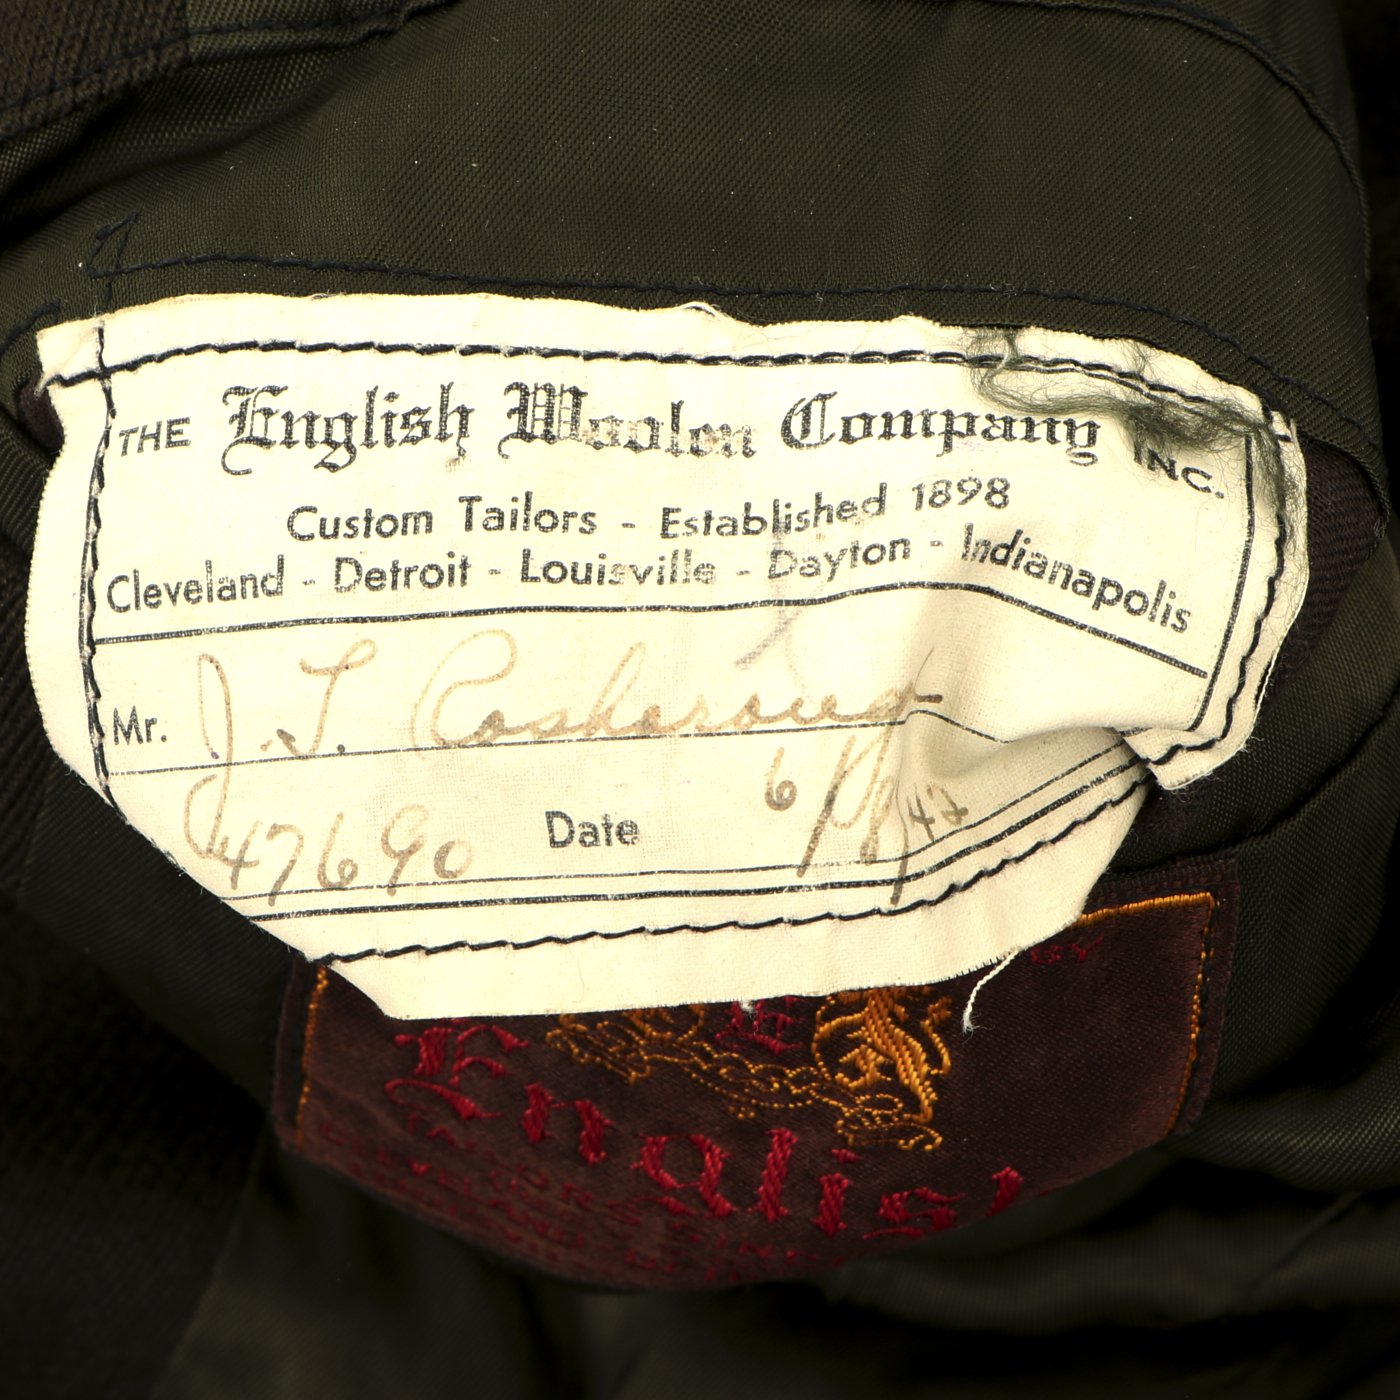 THE English Woolen Company INC.
Custom Tailors - Established 1898
Cleveland - Detroit - Louisville - Dayton - Indianapolis
Mr. J. T.
47690 Date 6/18/42
BY
E
English
TAILORS SINCE
CLEVELAND